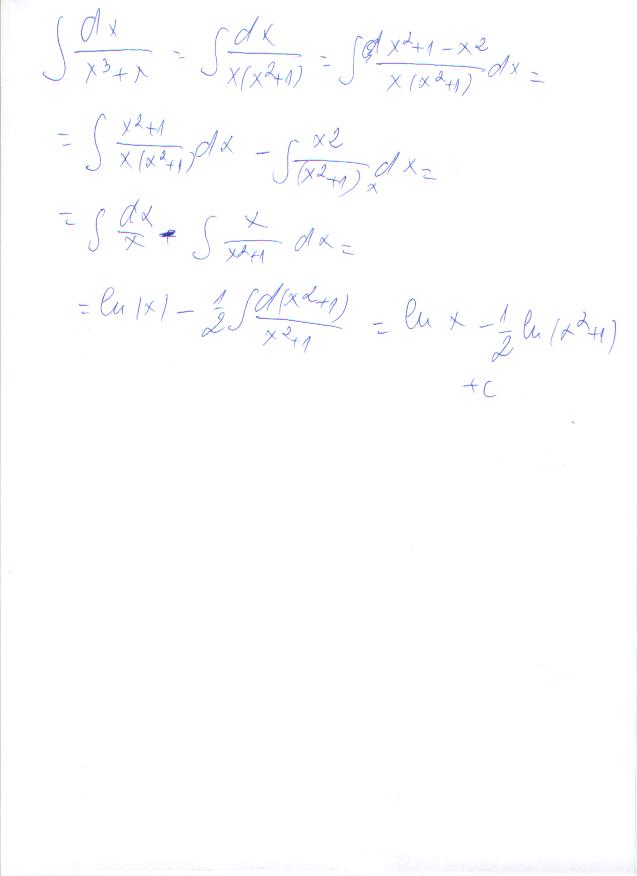 ∫ dx/(x³+x) = ∫ dx/(x(x²+1)) = ∫ (x²+1-x2)/(x(x²+1)) dx =
= ∫ (x²+1)/(x(x²+1)) dx - ∫ x2/((x²+1)x) dx =
= ∫ dx/x - ∫ x/(x²+1) dx =
= ln|x| - 1/2 ∫ d(x²+1)/(x²+1) = ln x - 1/2 ln(x²+1)
+c